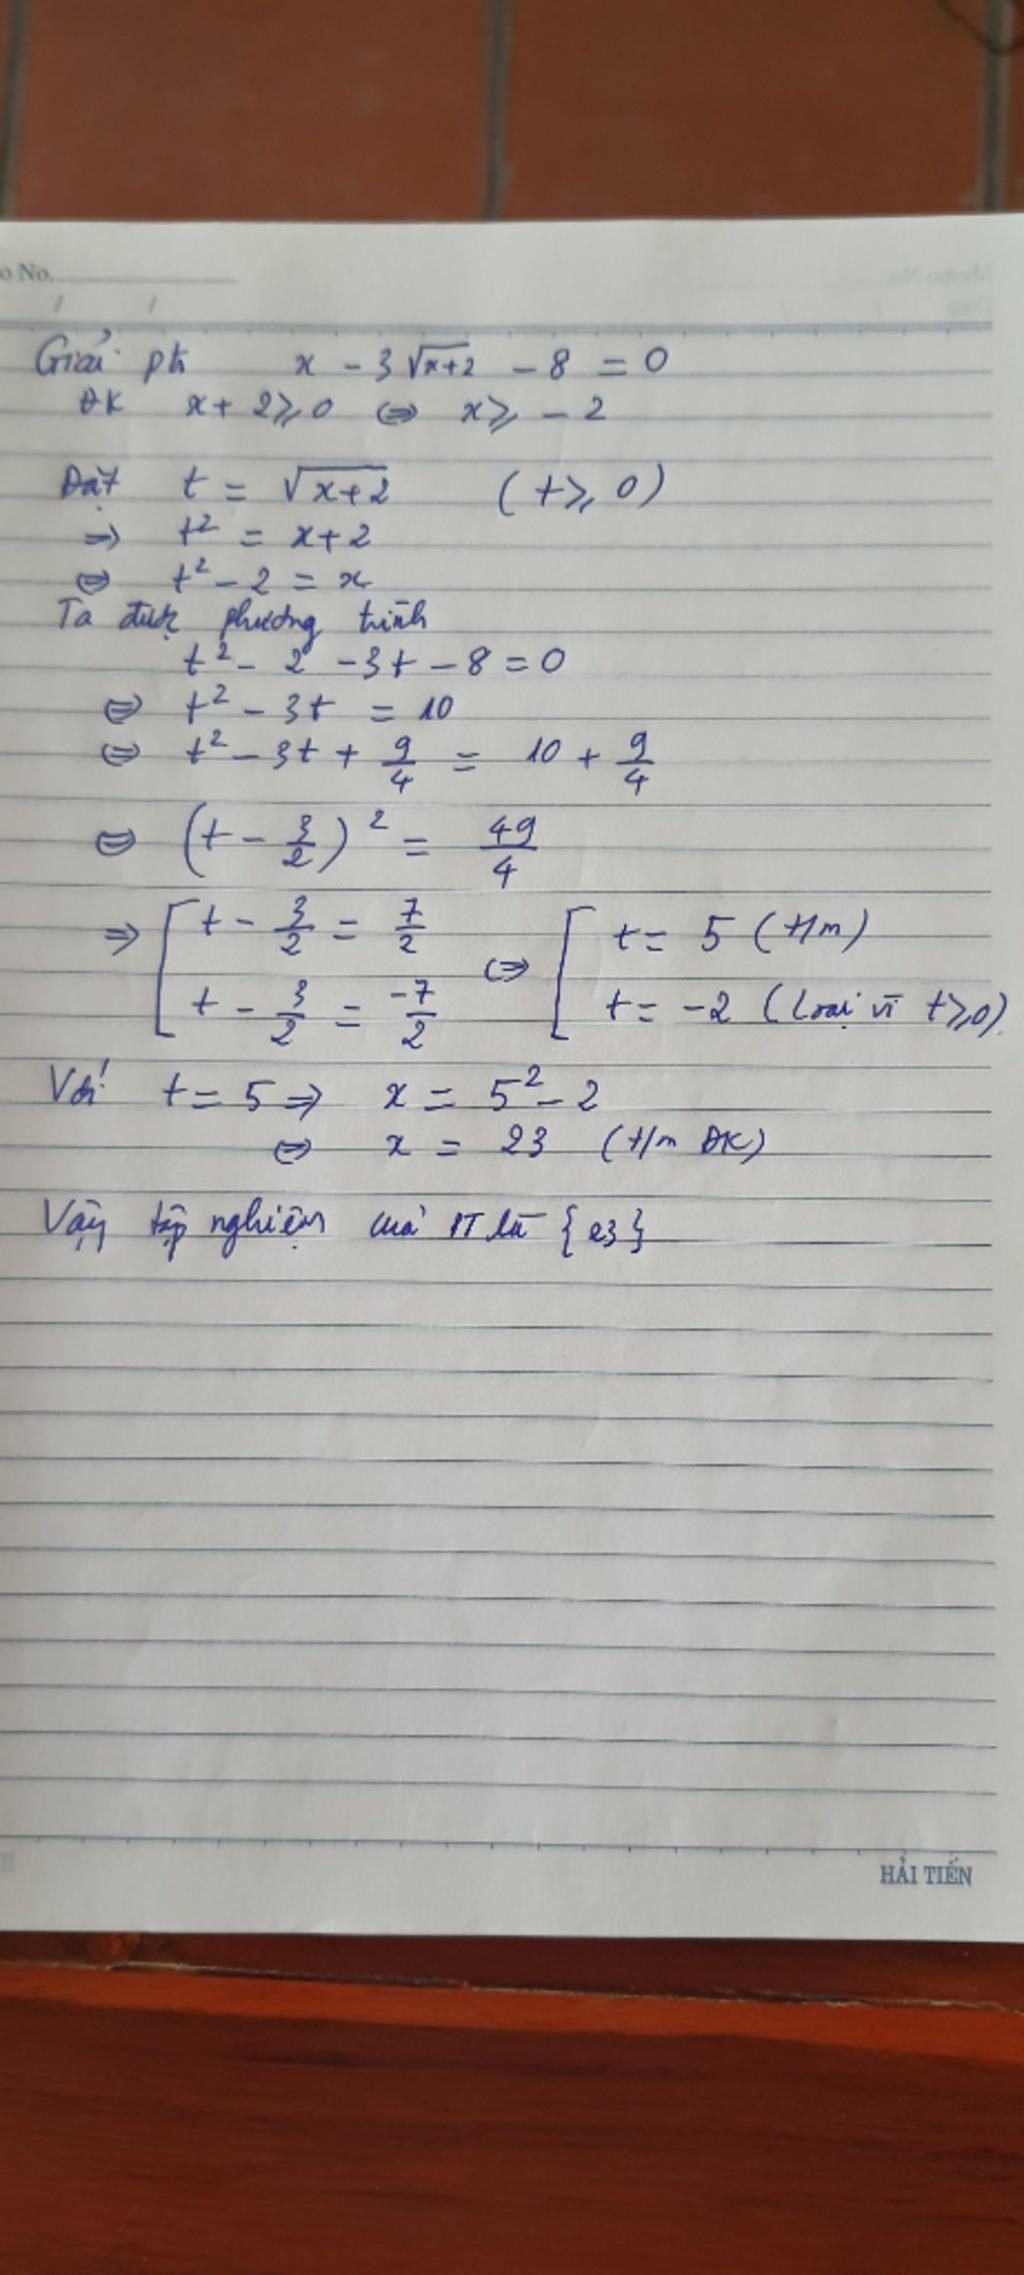 o No.
/ /
Giải pt x - 3√(x+2) - 8 = 0
ĐK x + 2 ⩾ 0 ⇔ x ⩾ - 2
Đặt t = √(x+2) (t ⩾ 0)
⇒ t² = x+2
⇔ t² - 2 = x
Ta được phương trình
t² - 2 - 3t - 8 = 0
⇔ t² - 3t = 10
⇔ t² - 3t + 9/4 = 10 + 9/4
⇔ (t - 3/2)² = 49/4
⇒ [ t - 3/2 = 7/2 ⇔ [ t = 5 (t/m)
t - 3/2 = -7/2 t = -2 (Loại vì t ⩾ 0).
Với t = 5 ⇒ x = 5² - 2
⇔ x = 23 (t/m ĐK)
Vậy tập nghiệm của PT là {23}
HẢI TIẾN